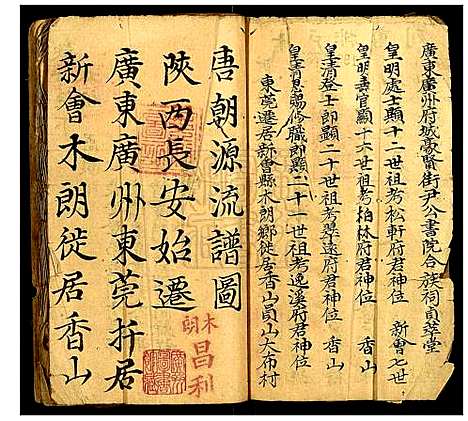 廣東廣州府城豪賢街尹公書院合族祠貞萃堂
皇明處士顯十二世祖考松軒府君神位 新會七世
皇明壽官顯十六世祖考柏林府君神位 香山
皇清登士郎顯二十世祖考翠遠府君神位 香山
皇清恩賜修職郎顯二十一世祖考逸溪府君神位
東莞遷居新會縣木朗鄉徙居香山員山大布村
唐朝源流譜圖
陝西長安始遷
廣東廣州東莞拆居
新會木朗徙居香山
木朗
昌利